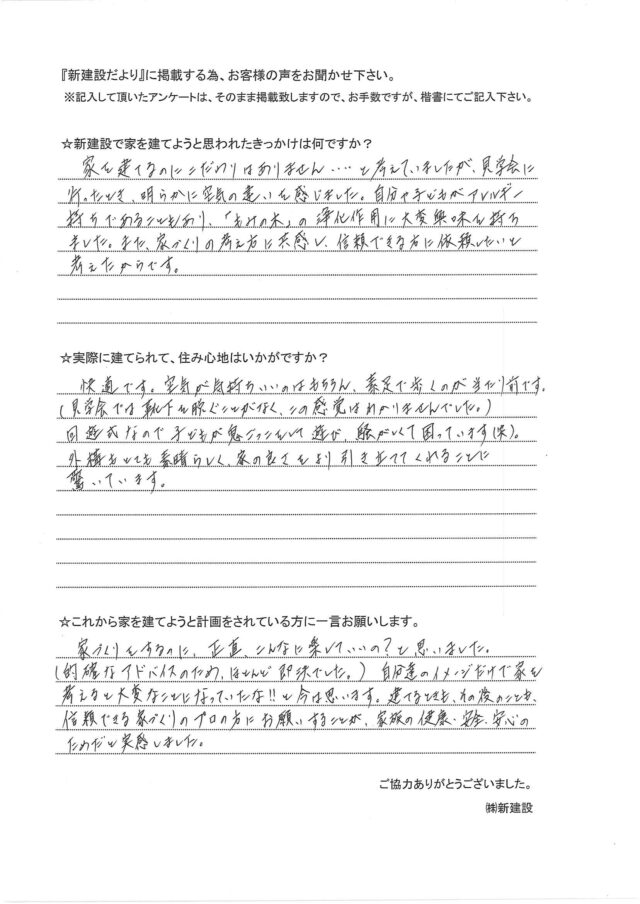 『新建設だより』に掲載する為、お客様の声をお聞かせ下さい。
※記入して頂いたアンケートは、そのまま掲載致しますので、お手数ですが、楷書にてご記入下さい。
☆新建設で家を建てようと思われたきっかけは何ですか?
家を建てるのにこだわりはありません…‥と考えていましたが、見学会に
行ったとき、明らかに空気の違いを感じました。自分や子どもがアレルギー
持ちであることもあり、「もみの木」の浄化作用に大変興味を持ち
ました。また、家づくりの考え方に共感し、信頼できる方に依頼したいと
考えたからです。
☆実際に建てられて、住み心地はいかがですか?
快適です。空気が気持ちいいのはもちろん、素足で歩くのが当たり前です。
(見学会では靴下を脱ぐことがなく、この感覚はわかりませんでした。)
回遊式なので子どもが鬼ごっこをして遊び、騒がしくて困っています(笑)。
外構もとても素晴らしく、家の良さをより引き立ててくれることに
驚いています。
☆これから家を建てようと計画をされている方に一言お願いします。
家づくりをするのに、正直、こんなに楽していいの?と思いました。
(的確なアドバイスのため、ほとんど即決でした。)自分達のイメージだけで家を
考えると大変なことになっていたな!!と今は思います。建てるときも、その後のことも、
信頼できる家づくりのプロの方にお願いすることが、家族の健康・安全・安心の
ためだと実感しました。
ご協力ありがとうございました。
㈱新建設